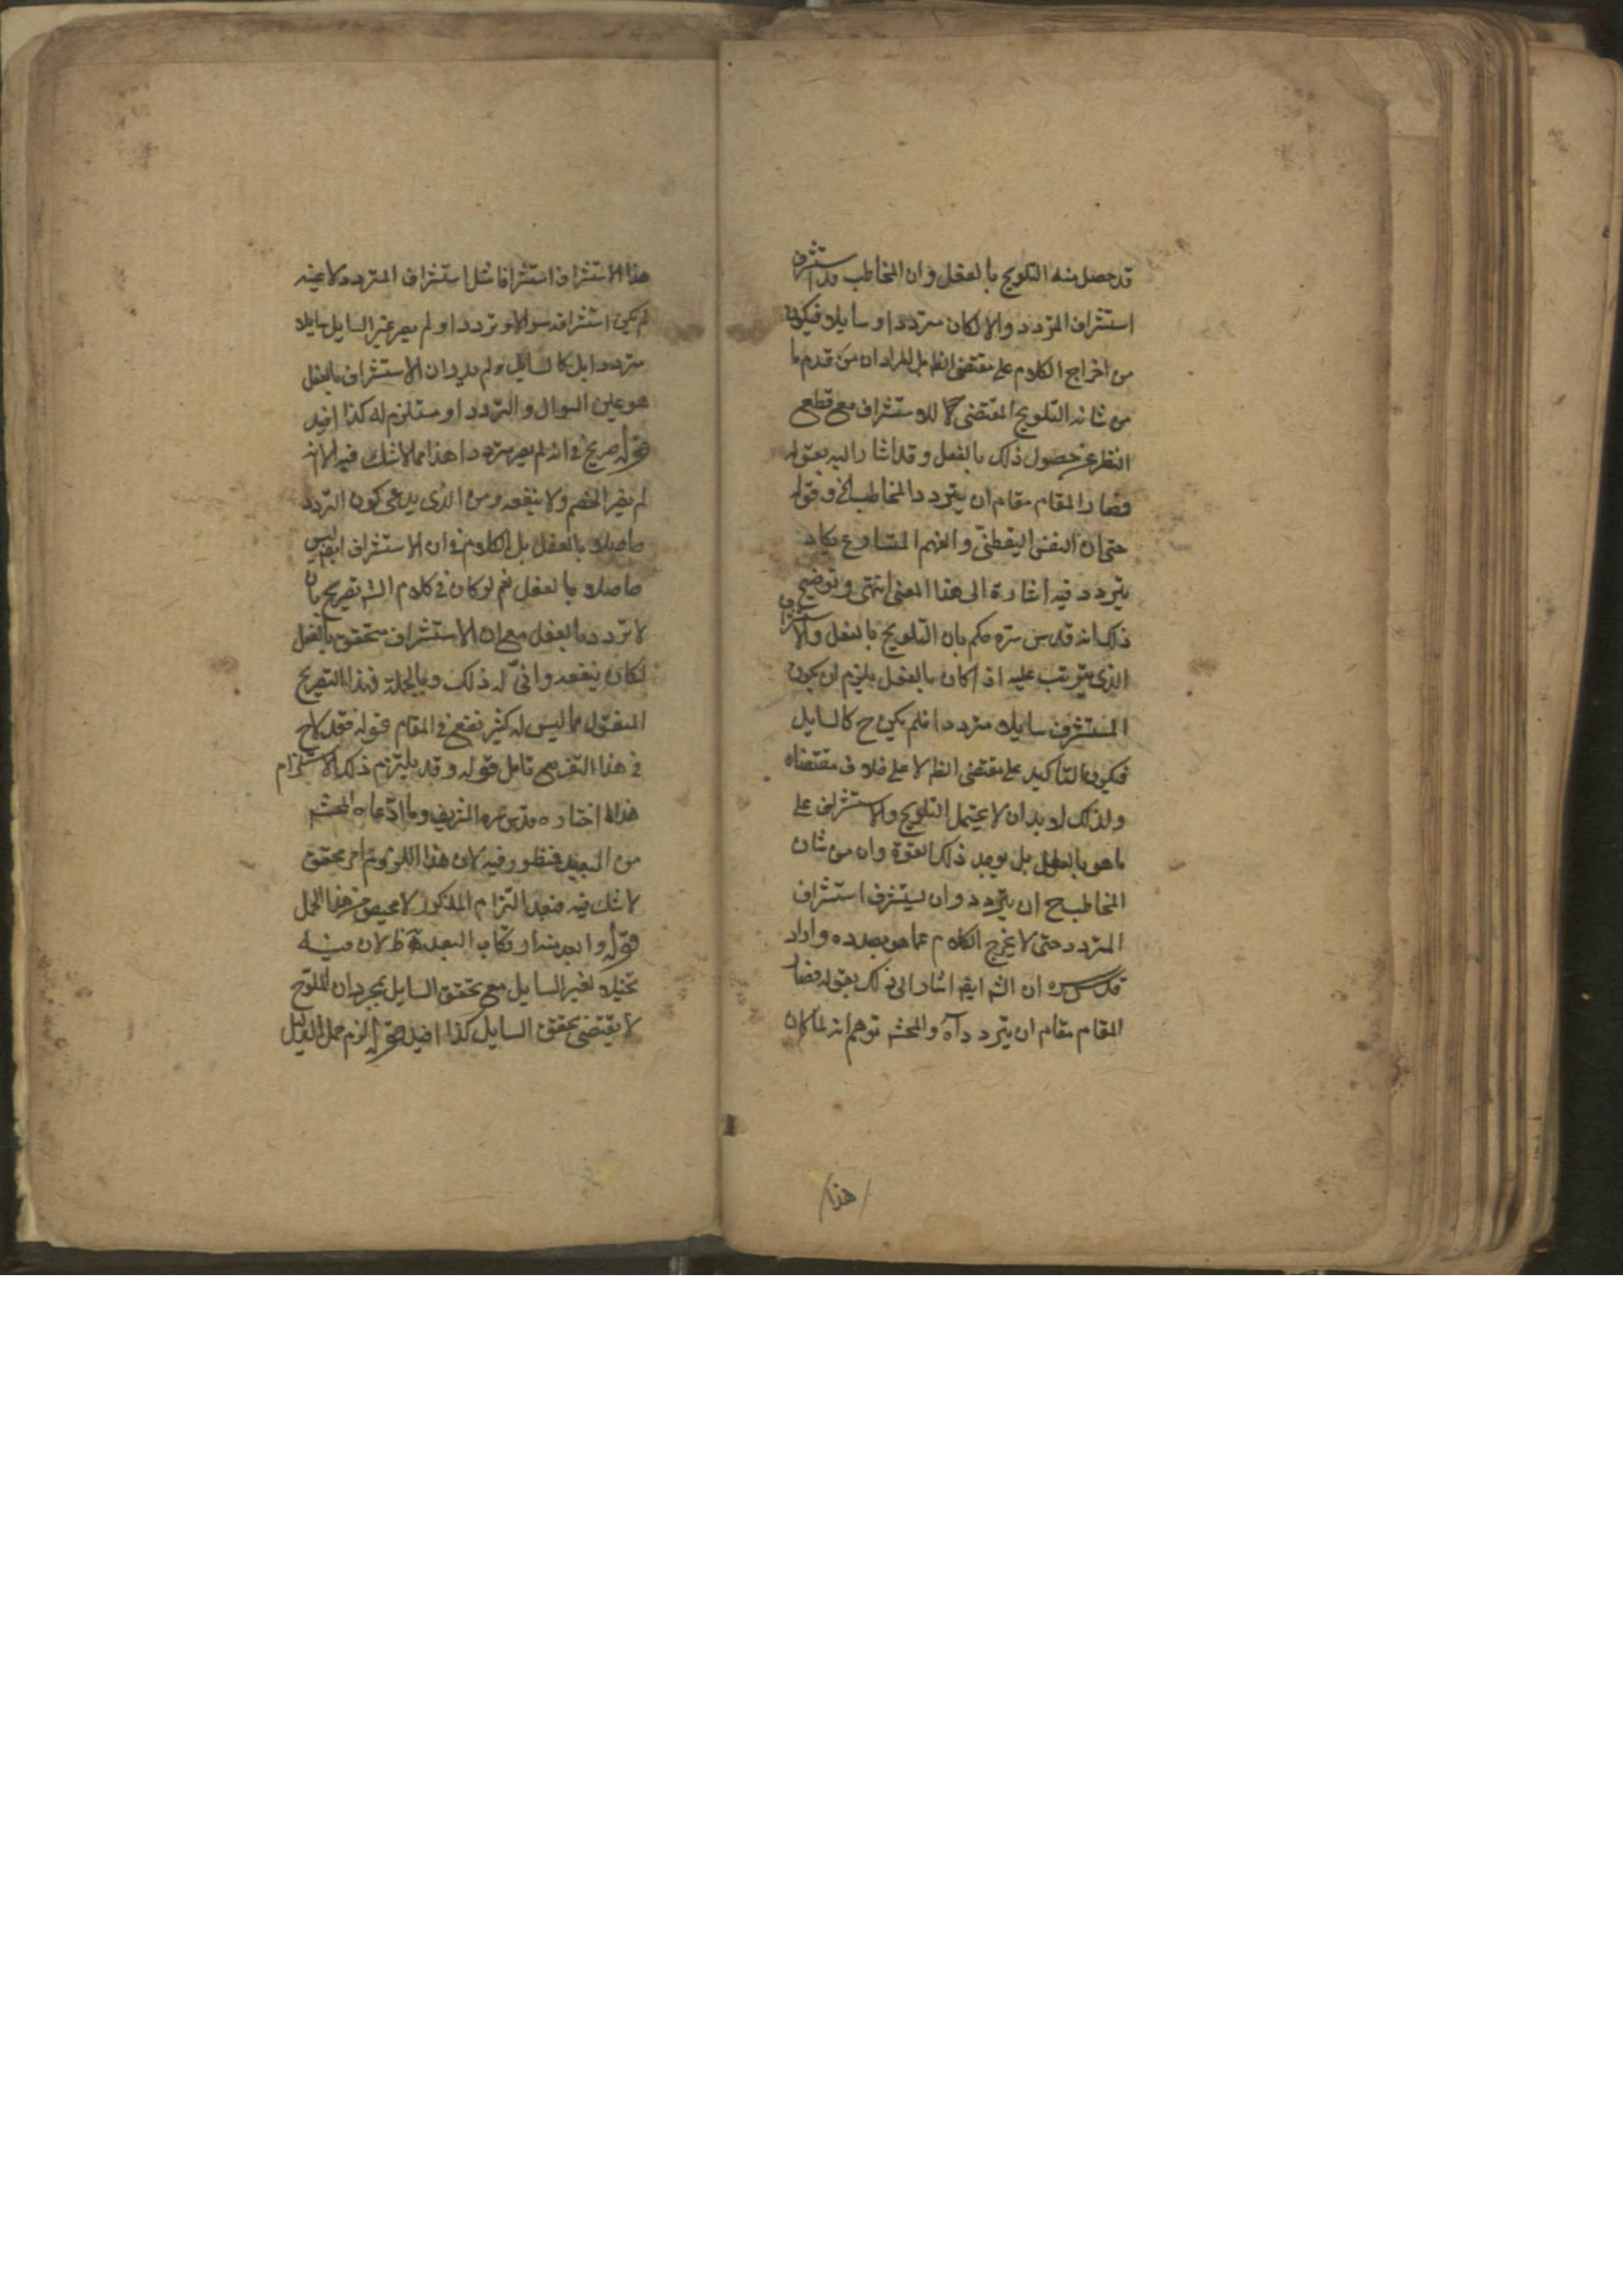 قد حصل منه التلويح بالفعل وان المخاطب قد استشرف
استشراف المتردد والا لكان مترددا او سايلا فيكون
من اخراج الكلام على مقتضى الظ بل المراد ان من قدم ما
من شانه التلويح المقتضى للاستشراف مع قطع
النظر عن حصول ذلك بالفعل وقد اشار اليه بقوله
فصار المقام مقام ان يتردد المخاطب الخ وقوله
حتى ان النفس اليقظى والفهم المتسارع يكاد
يتردد فيه اشارة الى هذا المعنى انتهى وتوضيح
ذلك انه قدس سره حكم بان التلويح بالفعل والاستشراف
الذى يترتب عليه اذا كان بالفعل يلزم ان يكون
المستشرف سايلا مترددا فلم يكن ح كالسايل
فيكون التاكيد على مقتضى الظ لا على خلاف مقتضاه
ولذلك لابد ان لا يحتمل التلويح والاستشراف على
ما هو بالفعل بل يوجد ذلك بالقوة وان من شان
المخاطب ح ان يتردد وان يستشرف استشراف
المتردد حتى لا يخرج الكلام عما هو بصدده واراد
قدس سره ان الشه ايضا اشار الى ذلك بقوله فصار
المقام مقام ان يتردد آه والمحشه توهم انه لما كان
هذا
هذا الاستشراف استشرافا مثل استشراف المتردد لا عينه
لم يكن استشرافه سوالا وترددا ولم يصر غير السايل سايلا
مترددا بل كالسايل ولم يدر ان الاستشراف بالفعل
هو عين السوال والتردد او مستلزم له كذا افيد
قوله صريح فى انه لم يصر مترددا هذا مما لا شك فيه الا انه
لم يضر الخصم ولا ينفعه ومن الذى يدعى كون التردد
حاصلا بالفعل بل الكلام فى ان الاستشراف ايضا ليس
حاصلا بالفعل نعم لو كان فى كلام الشه تصريح بان
لا تردد بالفعل مع ان الاستشراف متحقق بالفعل
لكان ينفعه وانّى له ذلك وبالجملة فهذا التصريح
المنقول مما ليس له كثير نفع فى المقام قوله فقد لاح
فى هذا التفريع تامل قوله وقد يلتزم ذلك الاستلزام
هذا ما اختاره قدس سره الشريف وما ادعاه المحشه
من البعيد فمنظور فيه لان هذا اللزوم امر محقق
لا شك فيه فبعد التزام المذكور لا محيص من هذا الحمل
قوله وابعد منه ارتكاب البعد ظ لان فيه
تخيلا لغير السايل مع تحقق السايل بمجرد ان الملوح
لا يقتضى تحقق السايل كذا افيد قوله الزم حمل الدليل